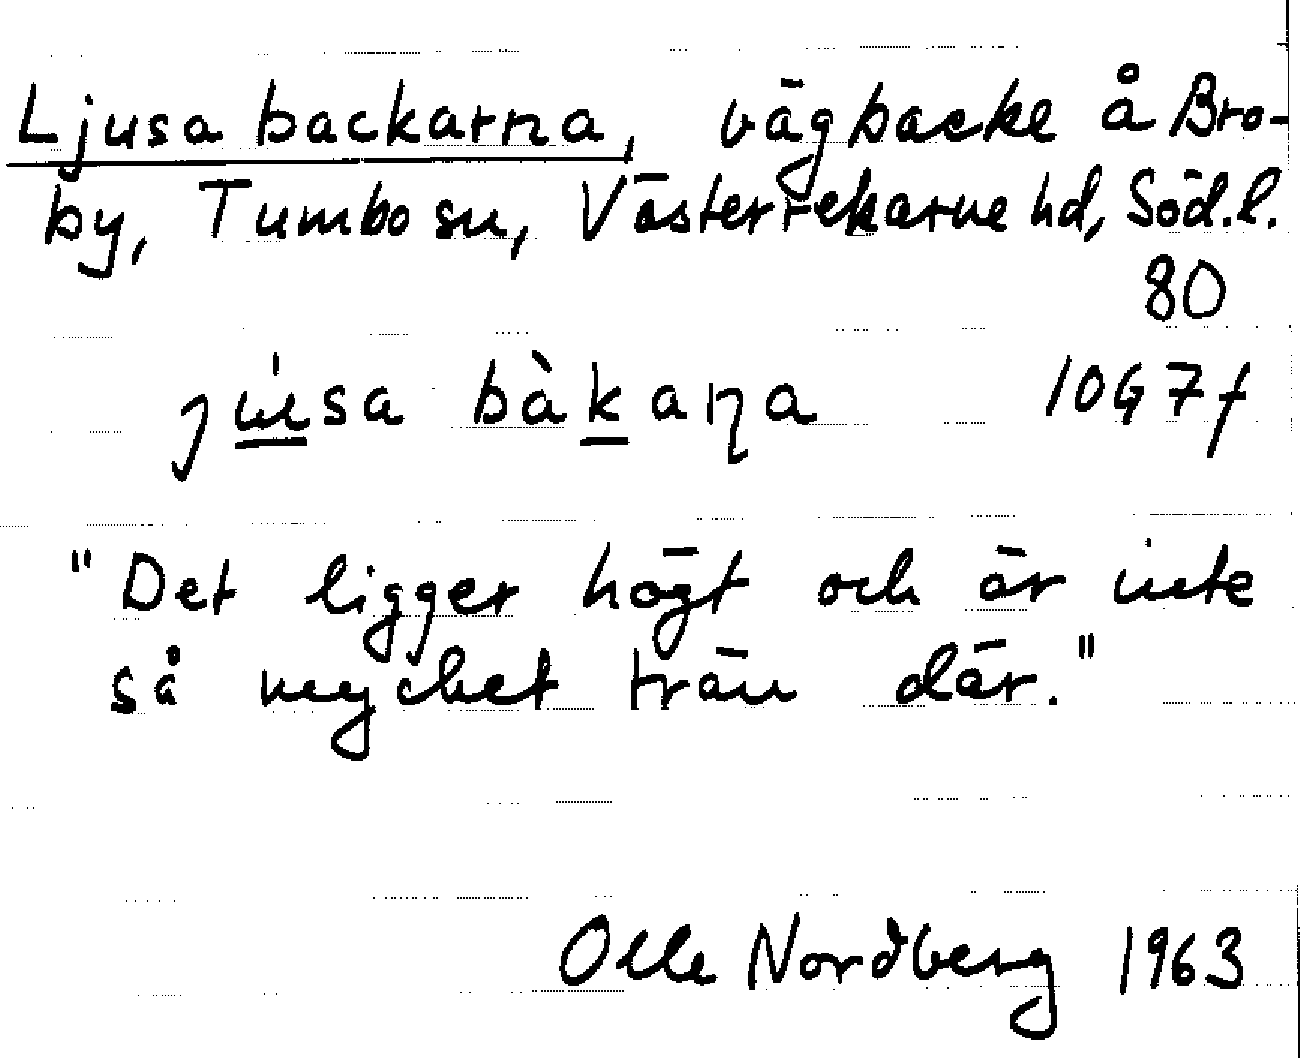 Ljusa backarna, vägbacke å Bro-
by, Tumbo sn, Västerrekarne hd, Söd.l.
80
10G 7f
"Det ligger högt och är inte
så mycket trän där."
Olle Nordberg 1963